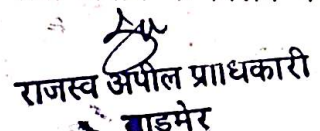 राजस्व अपील प्रााधकारी
बाडमेर